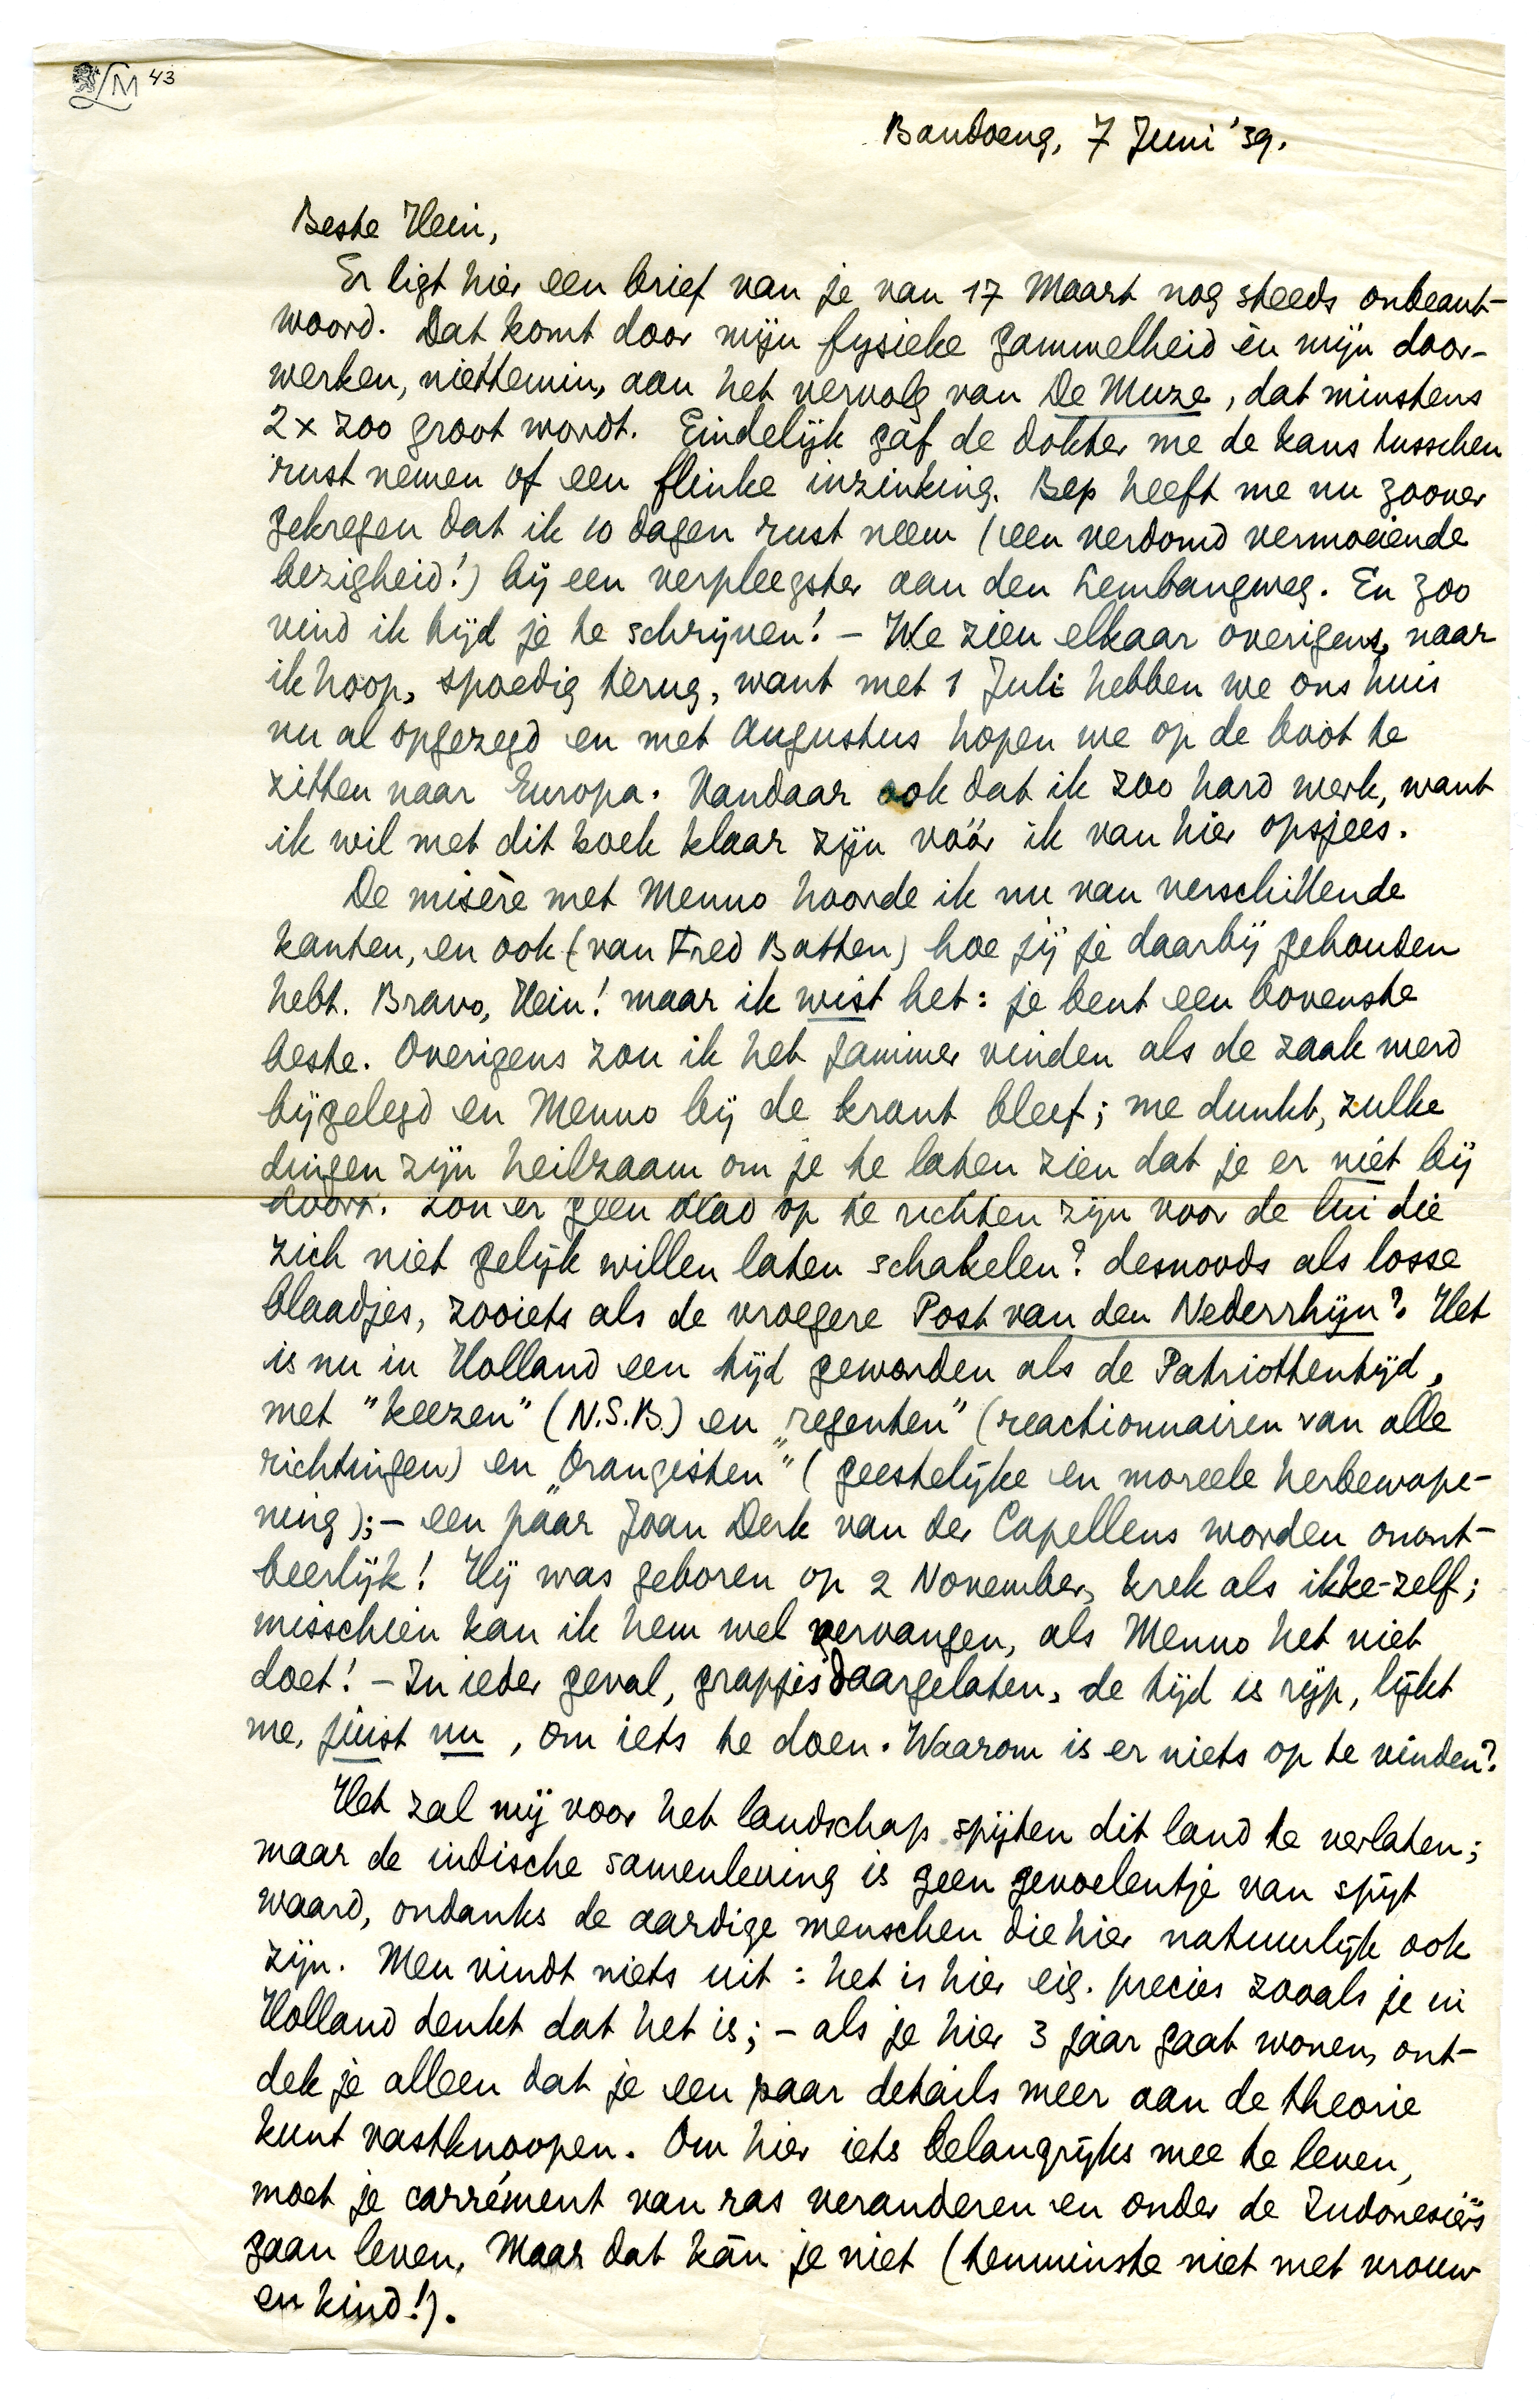 LM 43
Bandoeng, 7 Juni '39.
Beste Hein,
Er ligt hier een brief van je van 17 Maart nog steeds onbeant-
woord. Dat komt door mijn fysieke gammelheid èn mijn door-
werken, niettemin, aan het vervolg van De Muze, dat minstens
2 x zoo groot wordt. Eindelijk gaf de dokter me de kans tusschen
rust nemen of een flinke inzinking. Bep heeft me nu zoover
gekregen dat ik 10 dagen rust neem (een verdomd vermoeiende
bezigheid!) bij een verpleegster aan den Lembangweg. En zoo
vind ik tijd je te schrijven! – We zien elkaar overigens, naar
ik hoop, spoedig terug, want met 1 Juli hebben we ons huis
nu al opgezegd en met Augustus hopen we op de boot te
zitten naar Europa. Vandaar ook dat ik zoo hard werk, want
ik wil met dit boek klaar zijn vóór ik van hier opsjees.
De misère met Menno hoorde ik nu van verschillende
kanten, en ook (van Fred Batten) hoe jij je daarbij gehouden
hebt. Bravo, Hein! maar ik wist het: je bent een bovenste
beste. Overigens zou ik het jammer vinden als de zaak werd
bijgelegd en Menno bij de krant bleef; me dunkt, zulke
dingen zijn heilzaam om je te laten zien dat je er niet bij
hoort. Zou er geen blad op te richten zijn voor de lui die
zich niet gelijk willen laten schakelen? desnoods als losse
blaadjes, zooiets als de vroegere Post van den Nederrhijn? Het
is nu in Holland een tijd geworden als de Patriottentijd,
met "keezen" (N.S.B.) en „regenten" (reactionnairen van alle
richtingen) en „Orangisten" (geestelijke en moreele herbewape-
ning); – een paar Joan Derk van der Capellens worden onont-
beerlijk! Hij was geboren op 2 November, krek als ikke-zelf;
misschien kan ik hem wel vervangen, als Menno het niet
doet! – In ieder geval, grapjes daargelaten, de tijd is rijp, lijkt
me, juist nu, om iets te doen. Waarom is er niets op te vinden?
Het zal mij voor het landschap spijten dit land te verlaten;
maar de indische samenleving is geen gevoelentje van spijt
waard, ondanks de aardige menschen die hier natuurlijk ook
zijn. Men vindt niets uit: het is hier eig. precies zooals je in
Holland denkt dat het is; – als je hier 3 jaar gaat wonen, ont-
dek je alleen dat je een paar details meer aan de theorie
kunt vastknoopen. Om hier iets belangrijks mee te leven,
moet je carrément van ras veranderen en onder de Indonesiërs
gaan leven. Maar dat kàn je niet (tenminste niet met vrouw
en kind!).